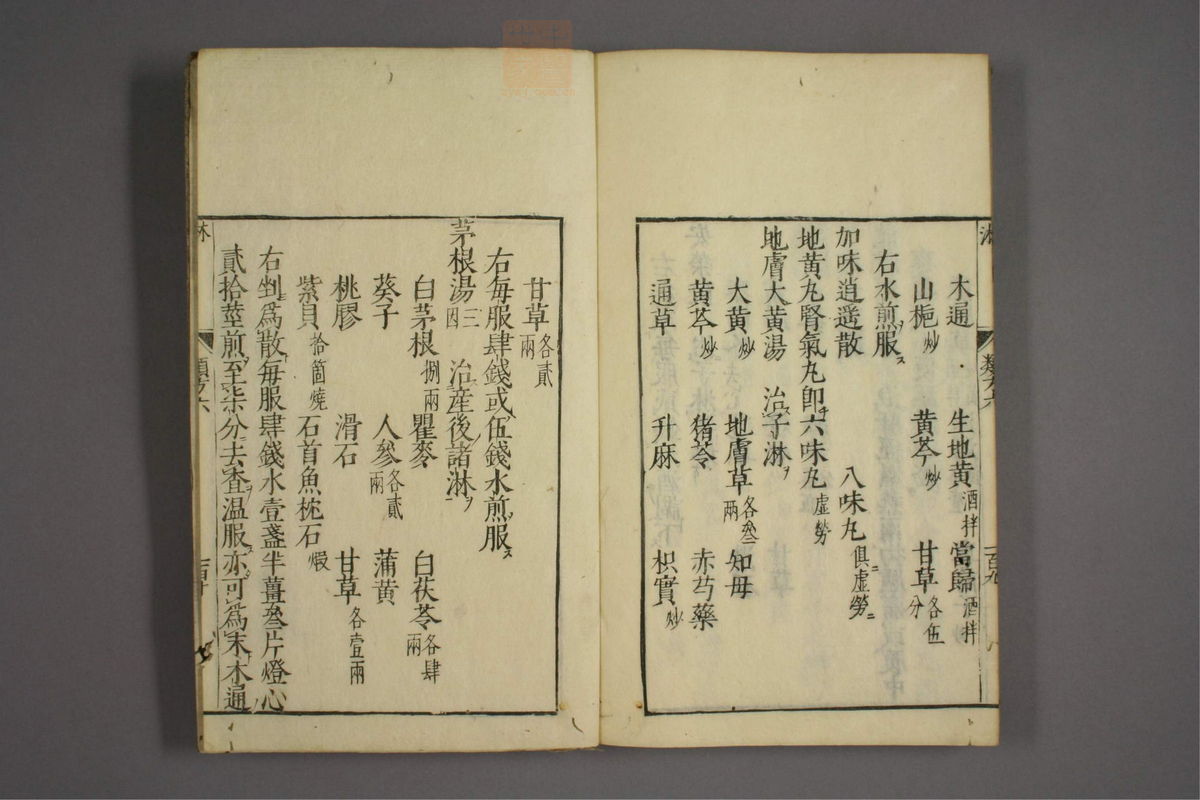 淋 類方六 百九
木通 生地黄酒拌 當歸酒拌
山梔炒 黄芩炒 甘草各伍分
右水煎服ス
加味逍遥散 八味丸俱虚勞ニ
地黄丸腎氣丸卽チ六味丸虚勞
地膚大黄湯 治ス子淋ヲ
大黄炒 地膚草各叁兩 知母
黄芩炒 猪苓 赤芍藥
通草 升麻 枳實炒
甘草各貳兩
右毎服肆錢或伍錢水煎服ス
茅根湯三四 治産後諸淋ヲ
白茅根捌兩 瞿麥 白茯苓各肆兩
葵子 人參各貳兩 蒲黄
桃膠 滑石 甘草各壹兩
紫貝拾箇燒 石首魚枕石煅
右剉爲散毎服肆錢水壹盞半薑叁片燈心
貳拾莖煎至柒分去査温服亦可爲末木通
類方六 百十